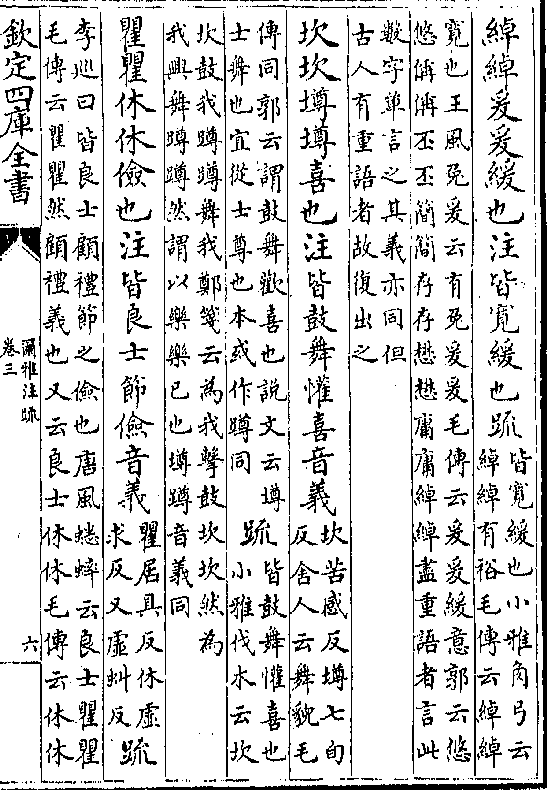 綽綽爰爰緩也注皆寛緩也疏
皆寛緩也小雅角弓云
綽綽有裕毛傳云綽綽
寛也王風兔爰云有兔爰爰毛傳云爰爰緩意郭云悠
悠偁偁丕丕簡簡存存懋懋庸庸綽綽盡重語者言此
數字單言之其義亦同但
古人有重語者故復出之
坎坎墫墫喜也注皆鼓舞懽喜音義
坎苦感反墫七旬
反舍人云舞貌毛
傳同郭云謂鼓舞歡喜也說文云墫
士舞也宜從士尊也本或作蹲同
疏
皆鼓舞懽喜也
小雅伐木云坎
坎鼓我蹲蹲舞我鄭箋云為我擊鼓坎坎然為
我興舞蹲蹲然謂以樂樂已也墫蹲音義同
瞿瞿休休儉也注皆良士節儉音義
瞿居具反休虛
求反又虛虯反
疏
李巡曰皆良士顧禮節之儉也唐風蟋蟀云良士瞿瞿
毛傳云瞿瞿然顧禮義也又云良士休休毛傳云休休
欽定四庫全書
爾雅注疏
卷三
六